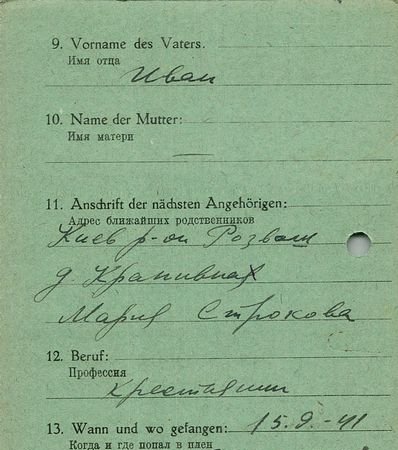 9. Vorname des Vaters.
Имя отца
Иван
10. Name der Mutter:
Имя матери
—
11. Anschrift der nächsten Angehörigen:
Адрес ближайших родственников
Киев р-он Розваж
д. Крапивная
Мария Строкова
12. Beruf:
Профессия
крестянин
13. Wann und wo gefangen: 15.9.-41
Когда и где попал в плен